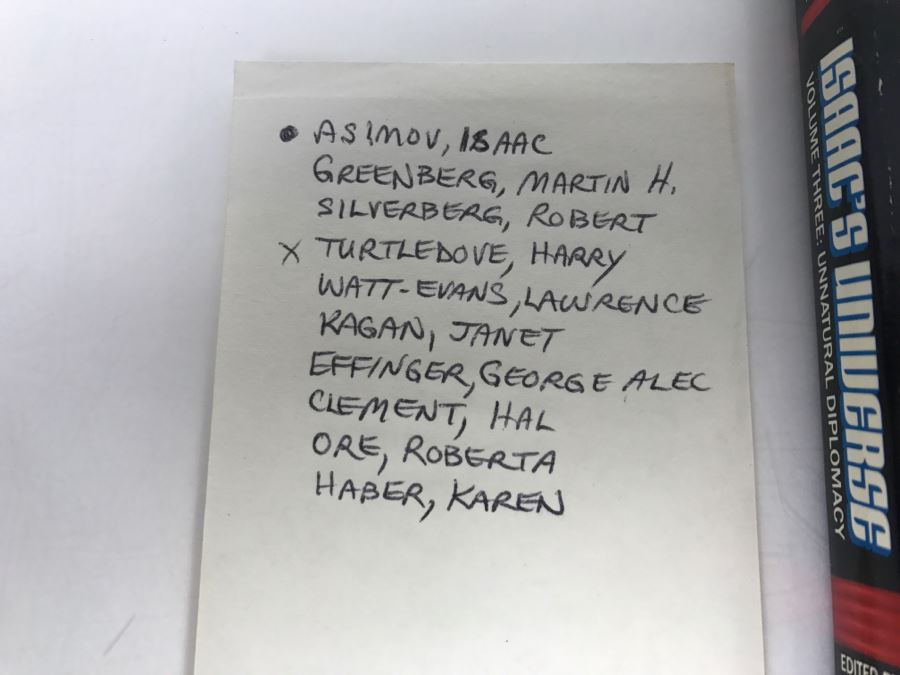 ● ASIMOV, ISAAC
GREENBERG, MARTIN H.
SILVERBERG, ROBERT
X TURTLEDOVE, HARRY
WATT-EVANS, LAWRENCE
KAGAN, JANET
EFFINGER, GEORGE ALEC
CLEMENT, HAL
ORE, ROBERTA
HABER, KAREN
ISAAC'S UNIVERSE
VOLUME THREE: UNNATURAL DIPLOMACY
EDITED